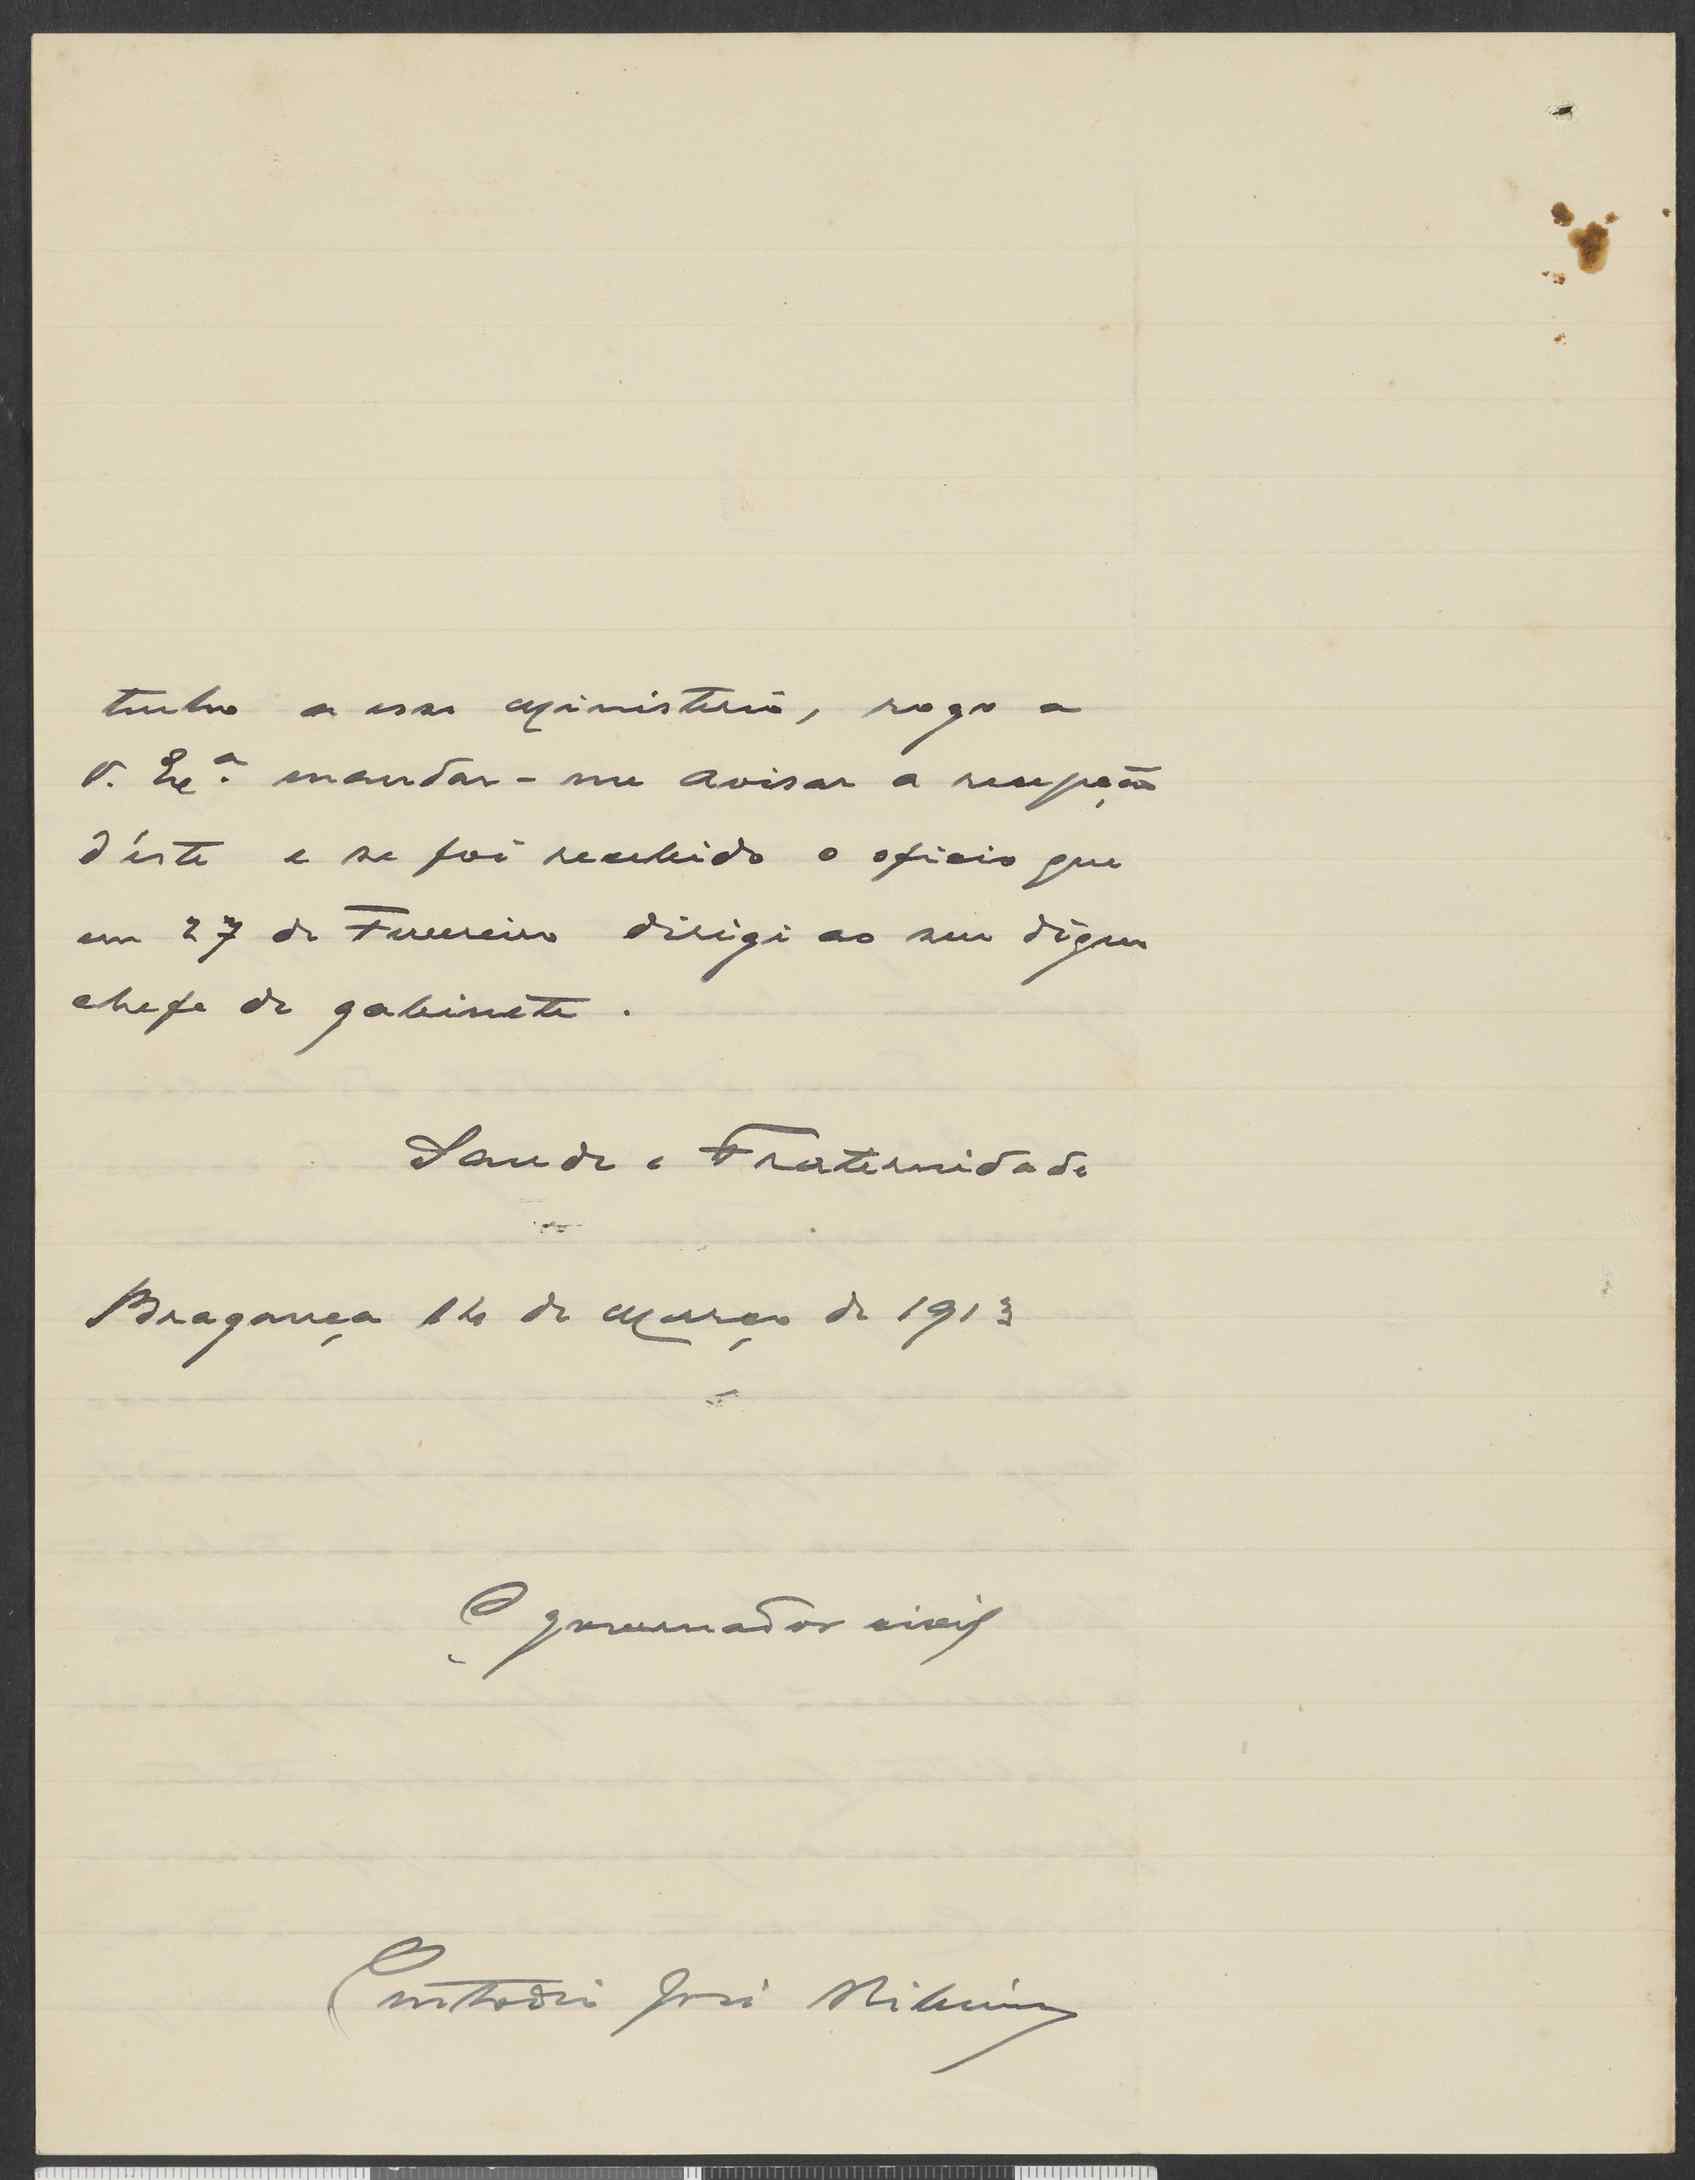 tenho a esse Ministerio, rogo a
V. Exª mandar-me avisar a recepção
d'éste e se foi recebido o oficio que
em 27 de Fevereiro dirigi ao seu digno
chefe de gabinete.
Saude e Fraternidade
Bragança 14 de Março de 1913
O governador civil
Custodio José Ribeiro